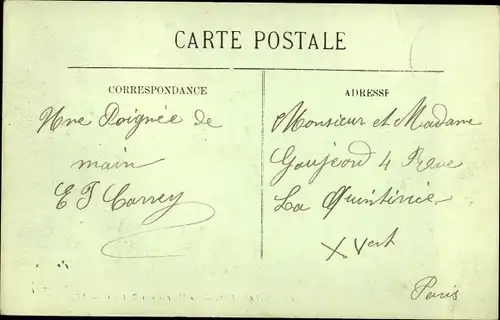 CARTE POSTALE
CORRESPONDANCE
ADRESSE
Une Poignée de
main
E T Carrey
Monsieur et Madame
4 Rue
La Quintinie
X Vert
Paris